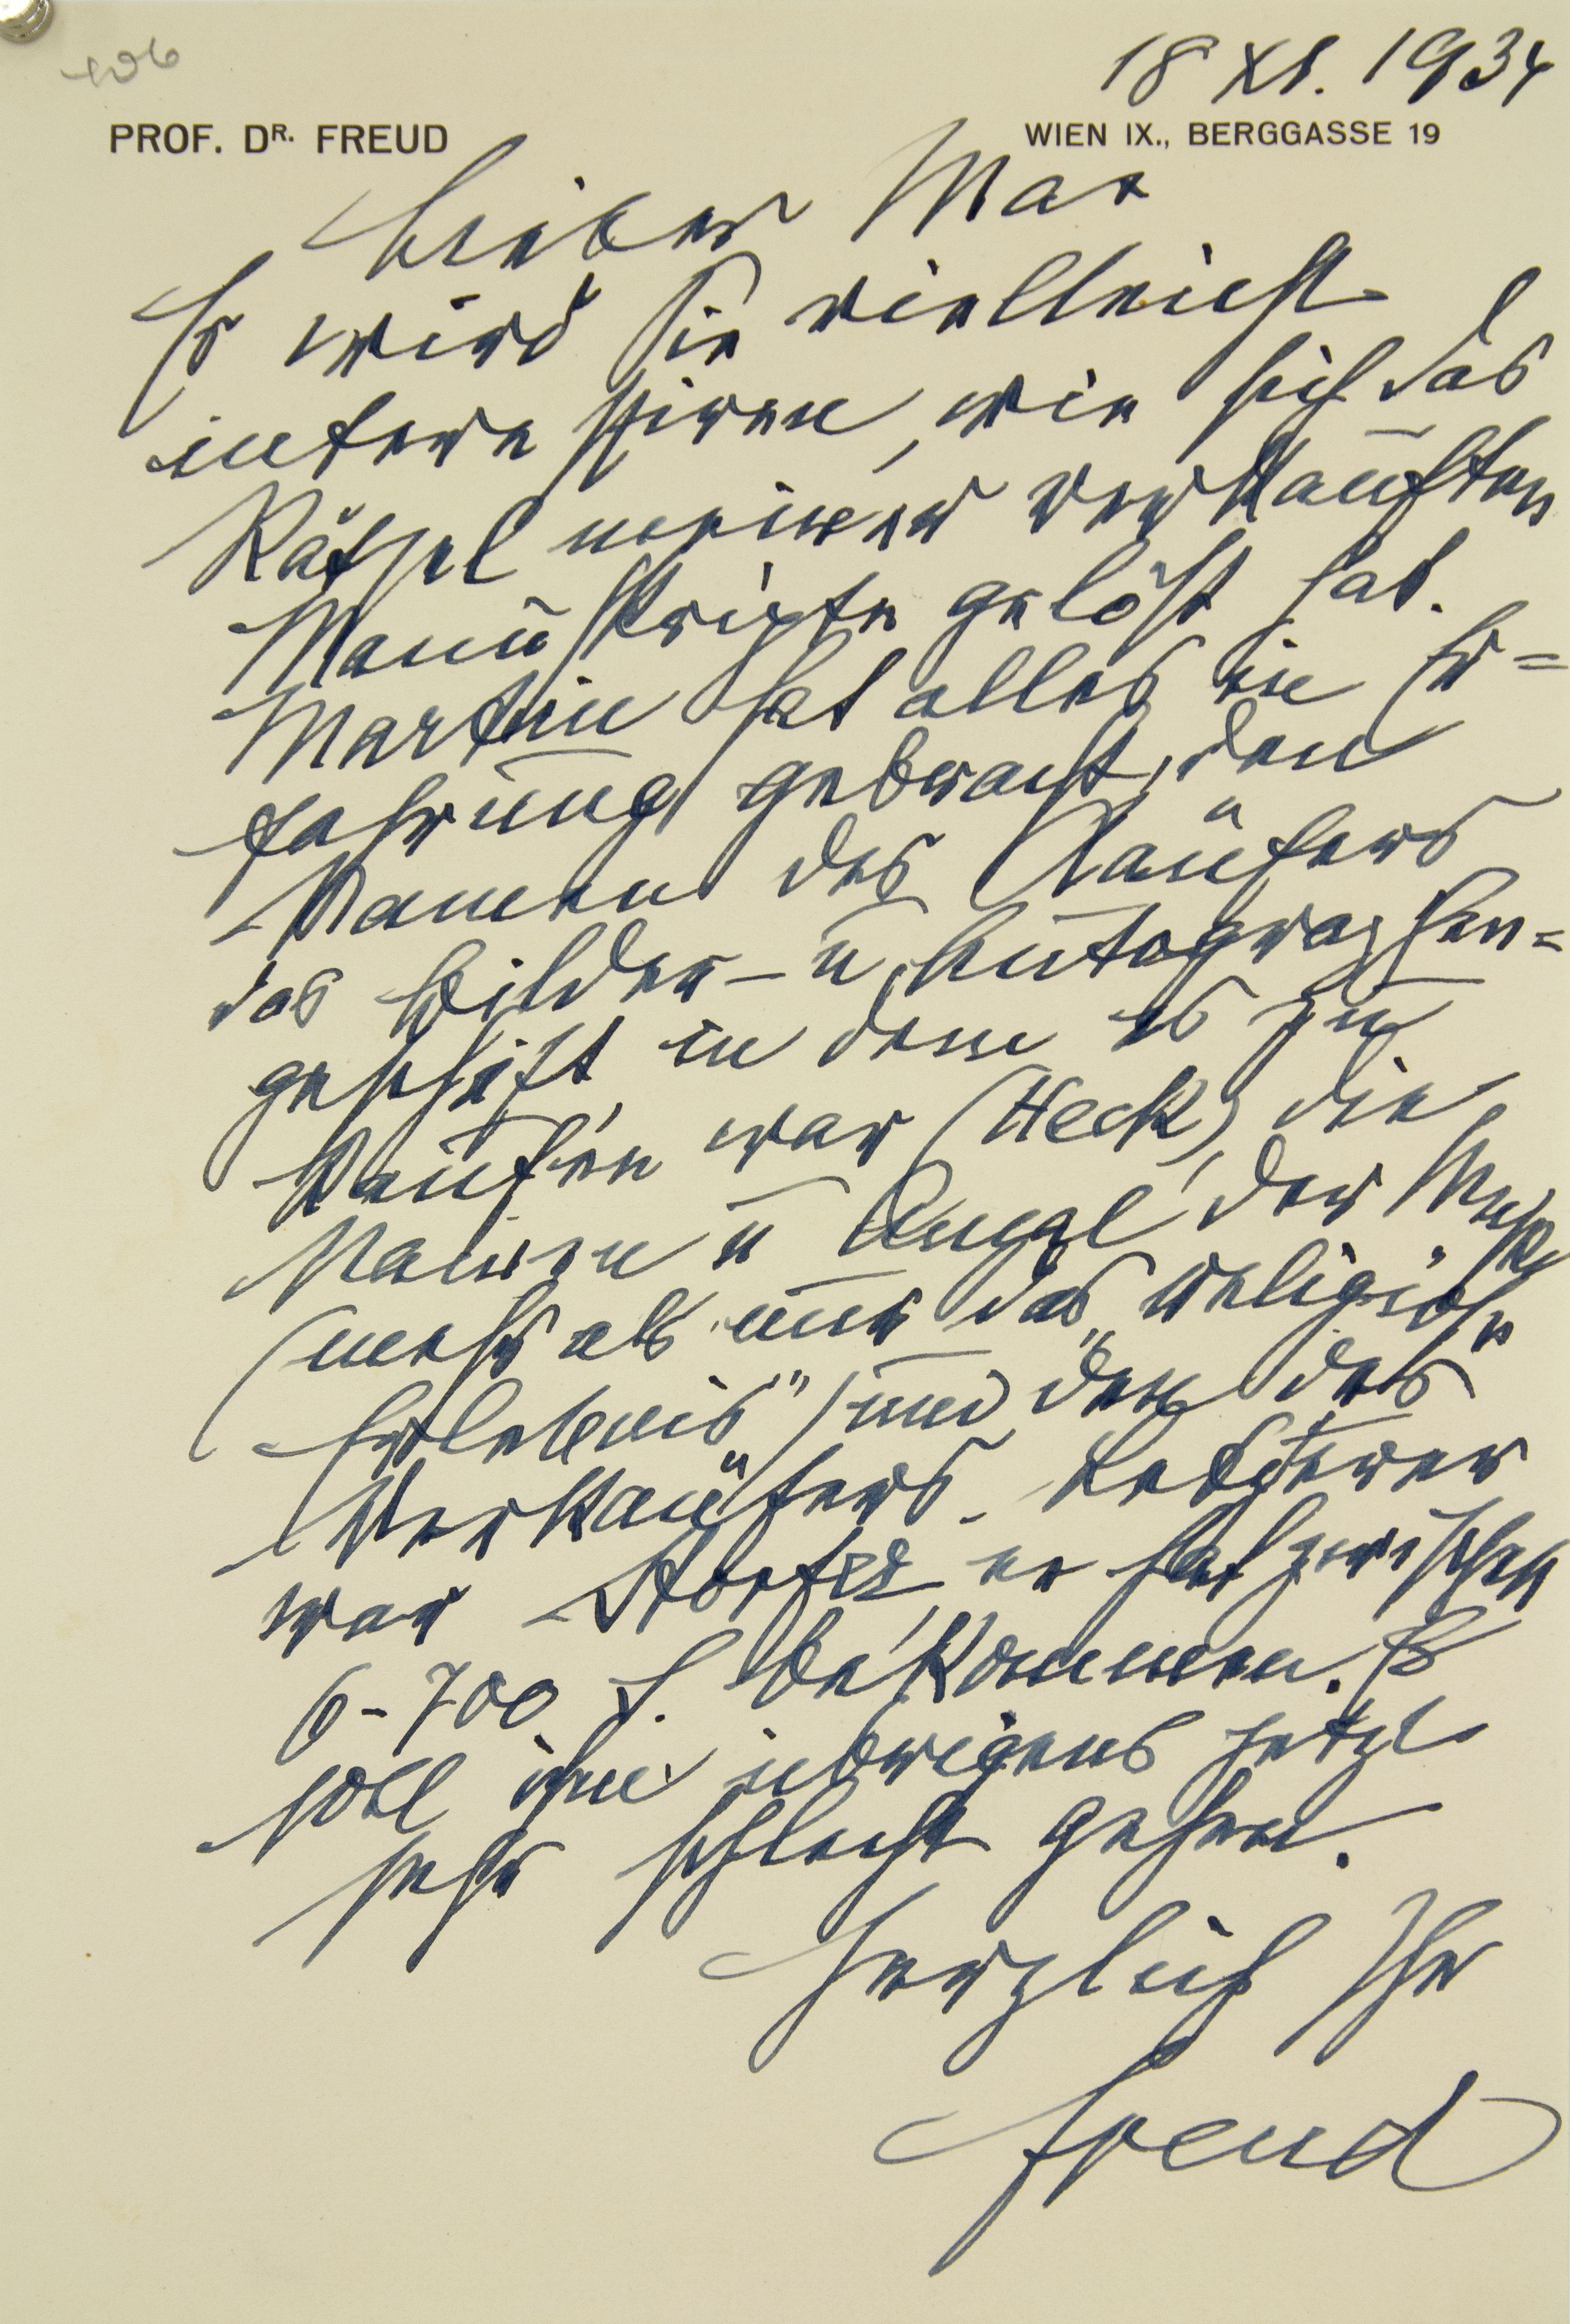 106
18 XI. 1934
PROF. DR. FREUD
WIEN IX., BERGGASSE 19
Lieber Max
Es wird Sie vielleicht
interessiren, wie sich das
Rätsel meiner verkauften
Manuskripte gelöst hat.
Martin hat alles in Er=
fahrung gebracht, den
Namen des Käufers
das Bilder- u Autographen=
geschäft in dem es zu
kaufen war (Heck), die
Namen u Anzal der Mskr
(mehr als nur das „religiöse
Erlebnis“) und den des
Verkäufers. Letzterer
war Storfer er hat zwischen
6-700 S. bekommen. Es
soll ihm übrigens jetzt
sehr schlecht gehen.
Herzlich Ihr
Freud